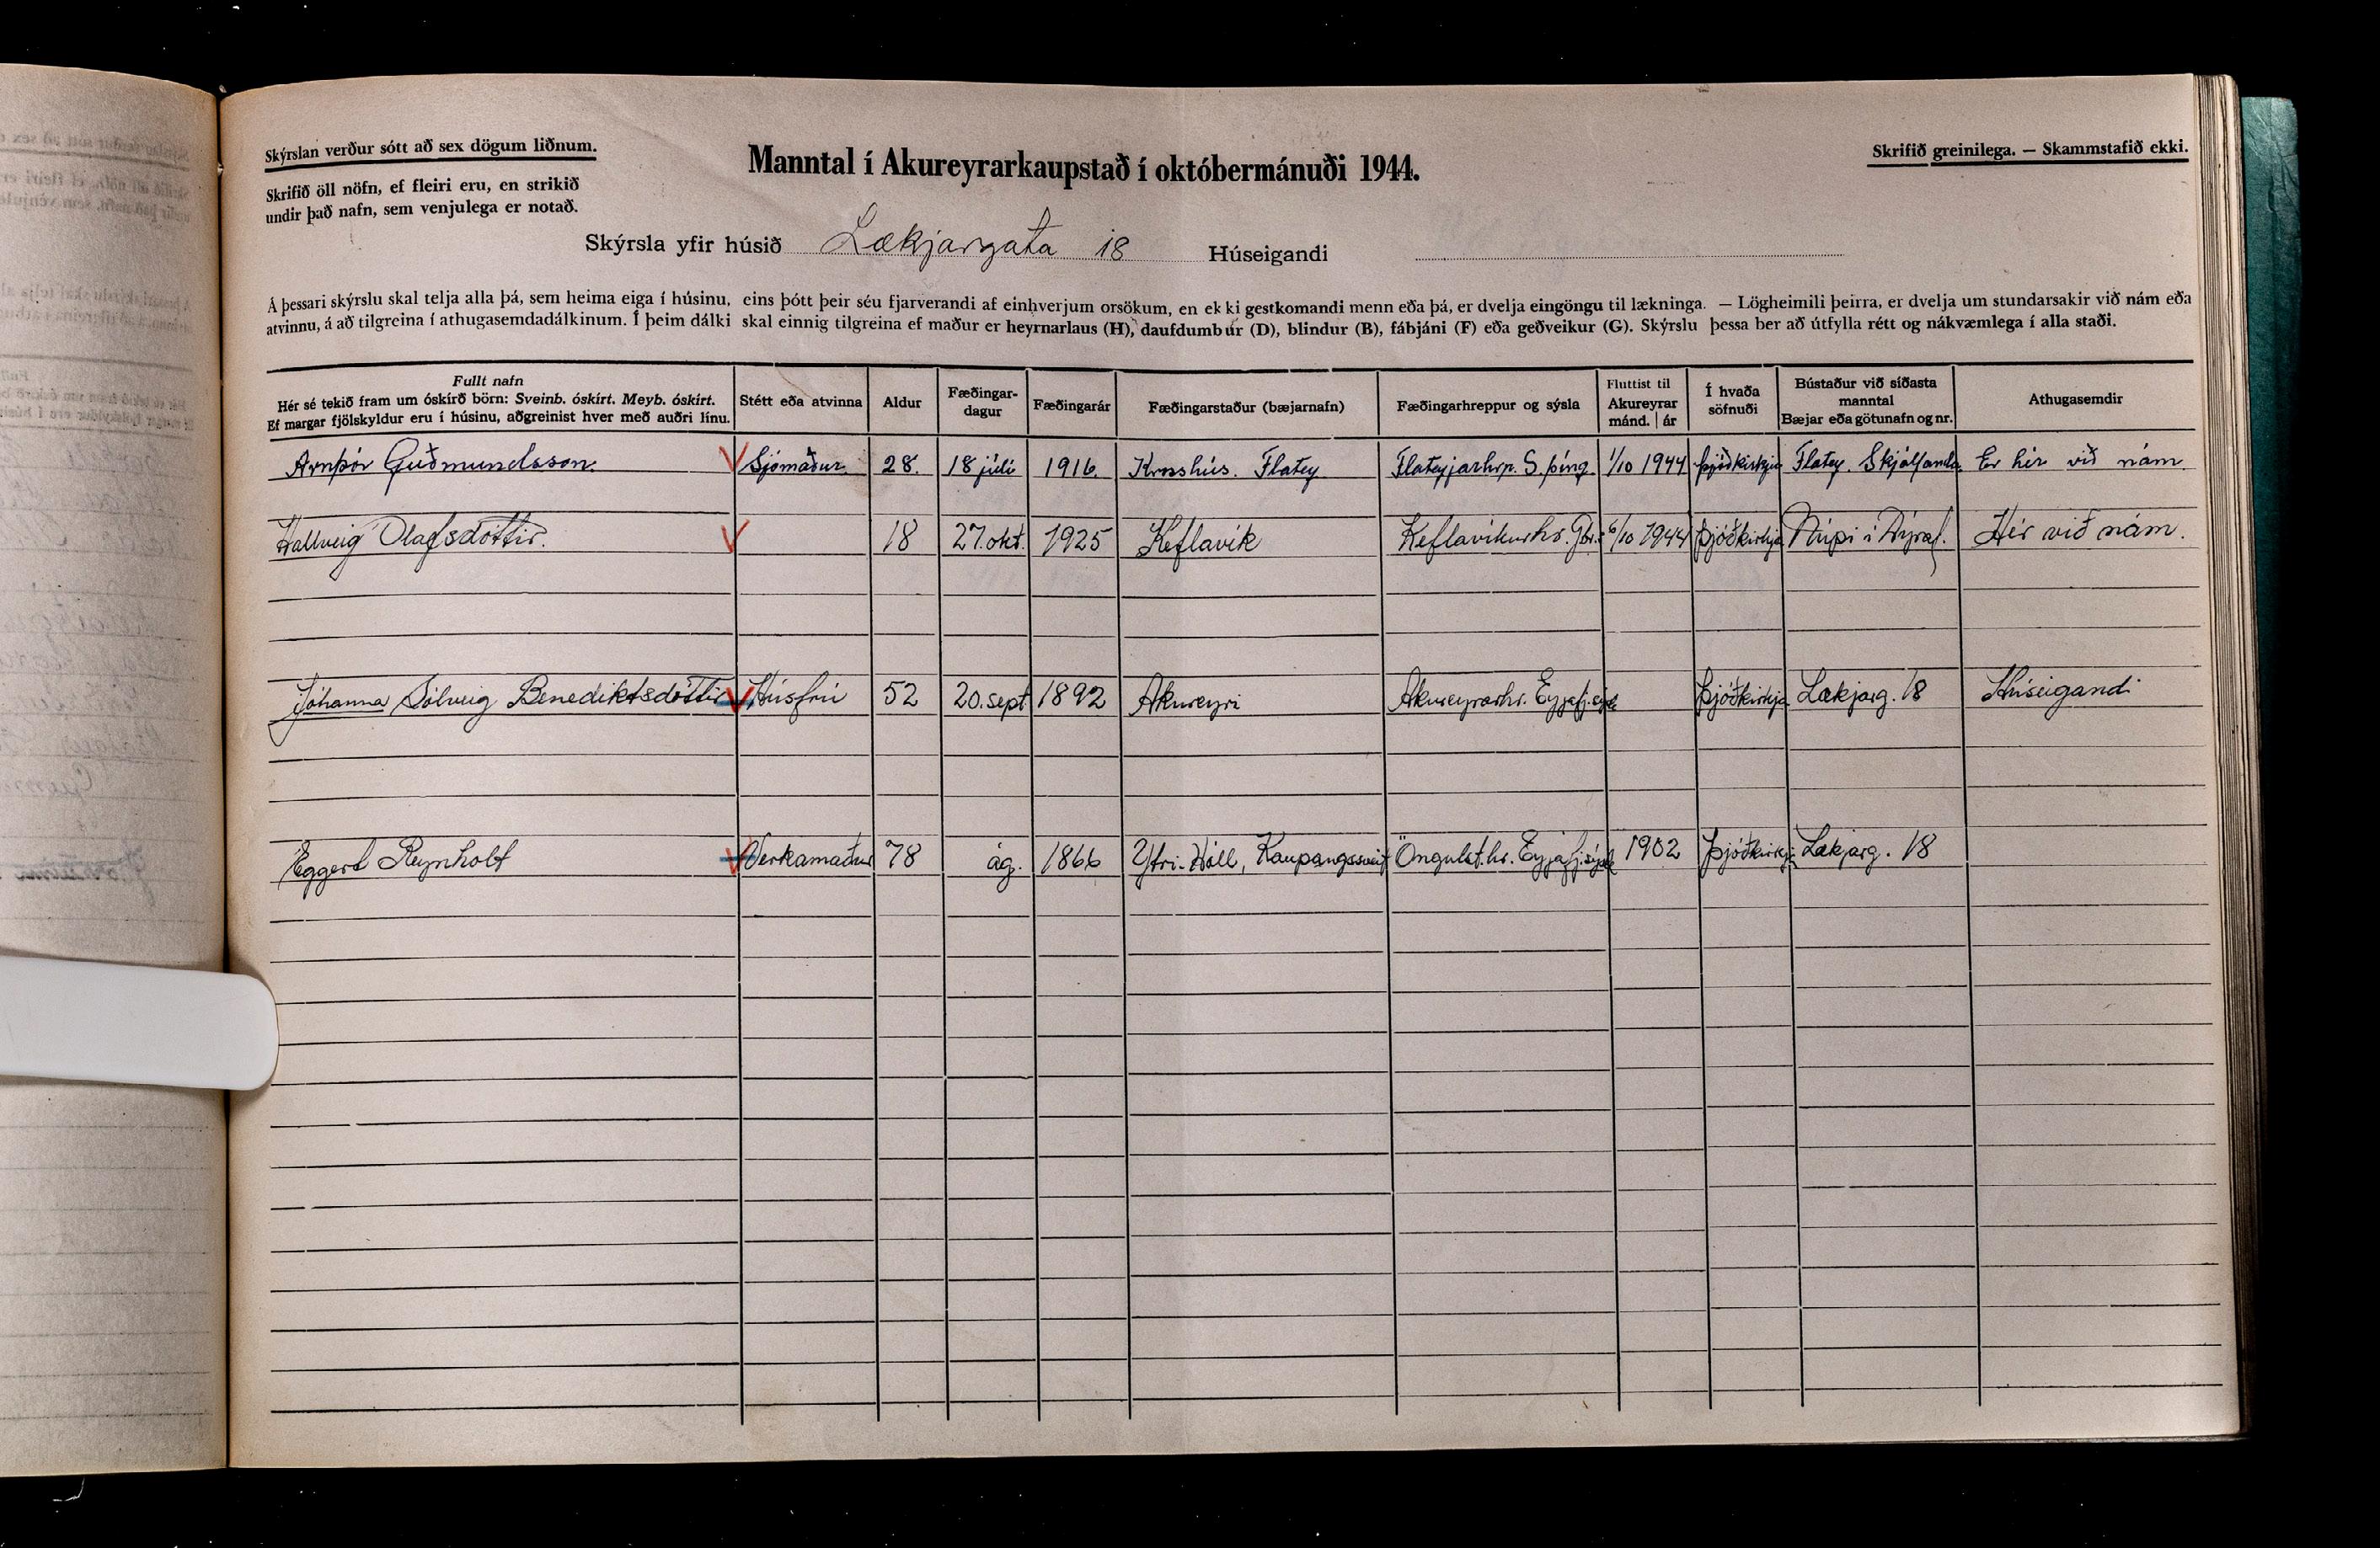 Skýrslan verður sótt að sex dögum liðnum.
Skrifið öll nöfn, ef fleiri eru, en strikið
undir það nafn, sem venjulega er notað.
Manntal í Akureyrarkaupstað í októbermánuði 1944.
Skrifið greinilega. — Skammstafið ekki.
Skýrsla yfir húsið Lækjargata 18 Húseigandi
Á þessari skýrslu skal telja alla þá, sem heima eiga í húsinu, eins þótt þeir séu fjarverandi af einhverjum orsökum, en ekki gestkomandi menn eða þá, er dvelja eingöngu til lækninga. — Lögheimili þeirra, er dvelja um stundarsakir við nám eða
atvinnu, á að tilgreina í athugasemdadálkinum. Í þeim dálki skal einnig tilgreina ef maður er heyrnarlaus (H), daufdumbur (D), blindur (B), fábjáni (F) eða geðveikur (G). Skýrslu þessa ber að útfylla rétt og nákvæmlega í alla staði.
Fullt nafn
Hér sé tekið fram um óskírð börn: Sveinb. óskírt. Meyb. óskírt.
Ef margar fjölskyldur eru í húsinu, aðgreinist hver með auðri línu.
Stétt eða atvinna
Aldur
Fæðingar-
dagur
Fæðingarár
Fæðingarstaður (bæjarnafn)
Fæðingarhreppur og sýsla
Fluttist til
Akureyrar
mánd. | ár
Í hvaða
söfnuði
Bústaður við síðasta
manntal
Bæjar eða götunafn og nr.
Athugasemdir
Arnþór Guðmundsson. Sjómaður. 28. 18 júlí 1916. Krosshús. Flatey Flateyjarhrp. S þing. 1/10 1944 þjóðkirkju Flatey. Skjálfanda Er hér við nám.
Hallveig Ólafsdóttir. 18 27. okt. 1925 Keflavík Keflavíkurhr. Gbr. 6/10 1944 Þjóðkirkja Núpi í Dýraf. Hér við nám.
Jóhanna Sólveig Benediktsdóttir Húsfrú 52 20. sept 1892 Akureyri Akureyrarhr. Eyjafj.sýsl Þjóðkirkja Lækjarg. 18 Húseigandi
Eggert Reynholt Verkamaður 78 ág. 1866 Ytri-Hóll, Kaupangssveit Öngulst.hr. Eyjafj.sýsl 1902 Þjóðkirkj Lækjarg. 18